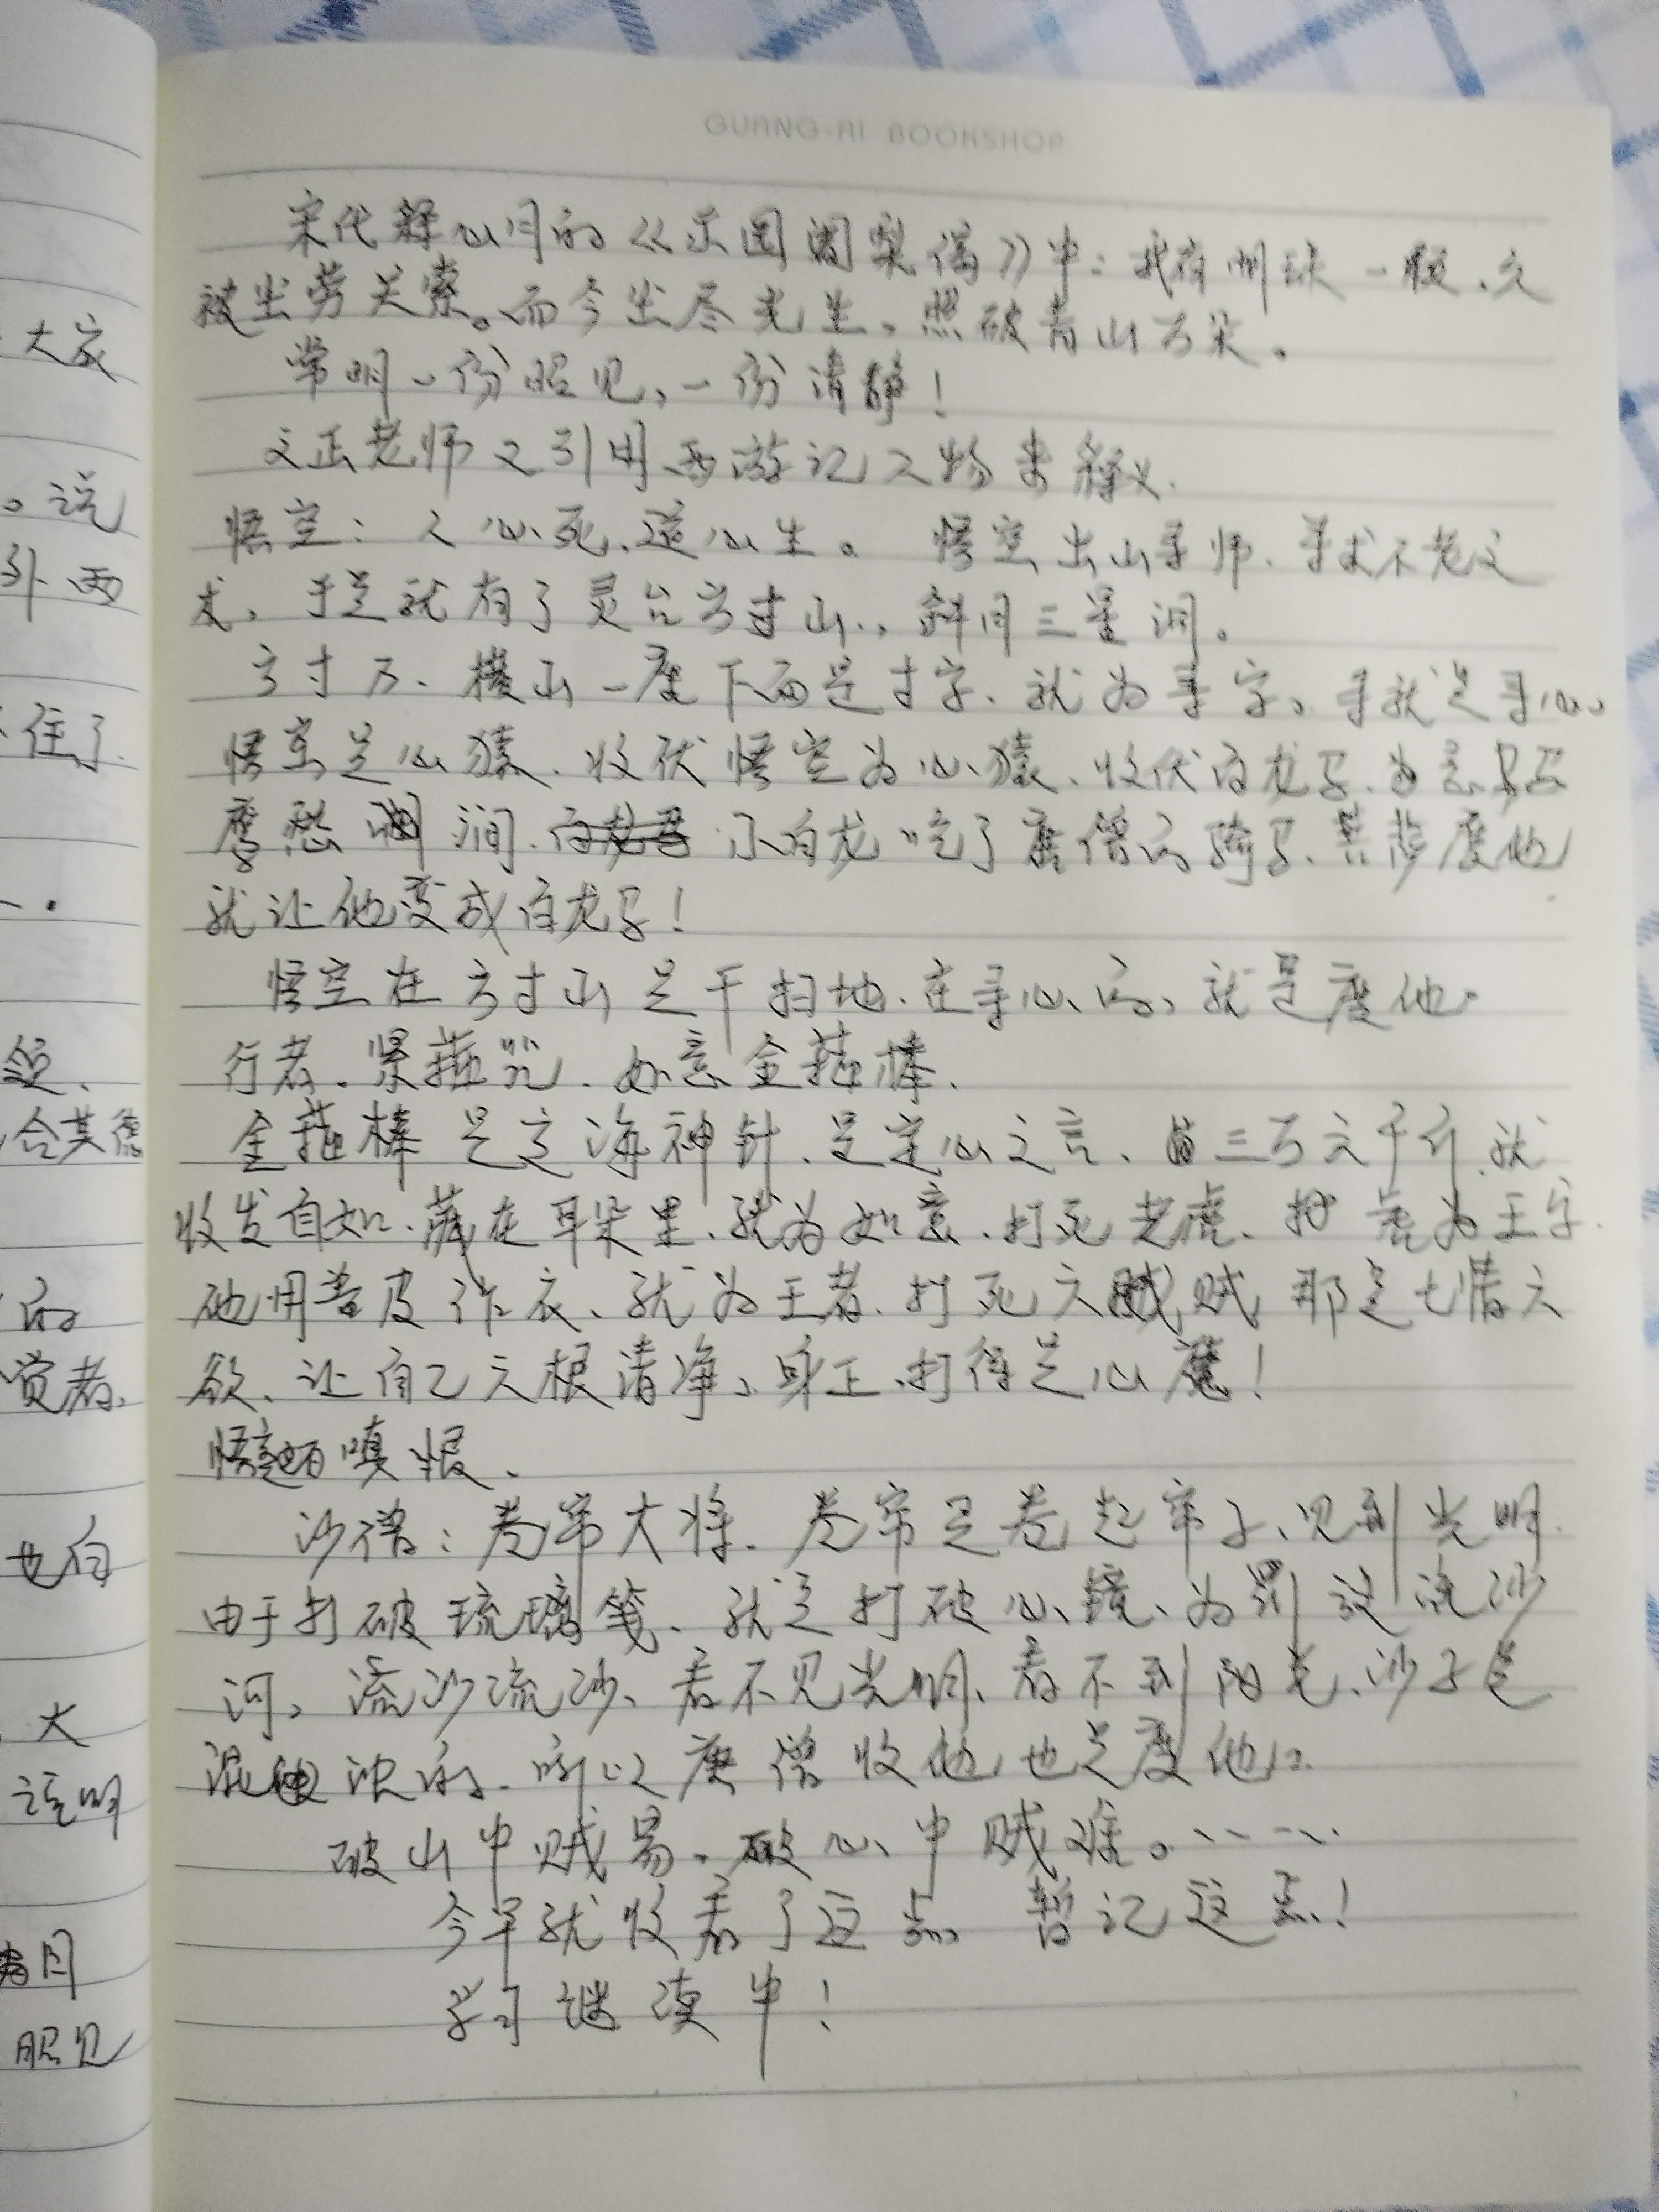 大家
。说
外 西
住了
合其德
的
觉者、
也自
大
说明
照见
GUANG-AI BOOKSHOP
宋代释心月的《示圆阇梨偈》中：我有明珠一颗，久
被尘劳关索。而今尘尽光生，照破青山万朵。
常明一份照见，一份清静！
文正老师又引用西游记人物来释义.
悟空：人心死、道心生。 悟空出山寻师、寻求不老之
术，于是就有了灵台方寸山，斜月三星洞。
方寸乃、横山一座下面是寸字、就为寻字，寻就是寻心。
悟空是心猿、收伏悟空为心猿、收伏白龙马、为意马
鹰愁涧、小白龙吃了唐僧的骑马、菩萨度他
就让他变成白龙马！
悟空在方寸山是干扫地、在寻心的，就是度他。
行者、紧箍咒、如意金箍棒、
金箍棒是定海神针、是定心之言、三万六千斤、就
收发自如、藏在耳朵里、就为如意、打死老虎、把虎为王字.
他用兽皮作衣、就为王者、打死六贼 那是七情六
欲、让自己六根清净，身正、打得是心魔！
嗔恨、
沙僧：卷帘大将、卷帘是卷起帘子、见到光明.
由于打破琉璃盏、就是打破心镜、为罚这流沙
河，流沙流沙、看不见光明、看不到阳光、沙子是
混沌的、所以唐僧收他也是度他。
破山中贼易、破心中贼难。……
今早就收看了这点 暂记这点！
学习 读中！